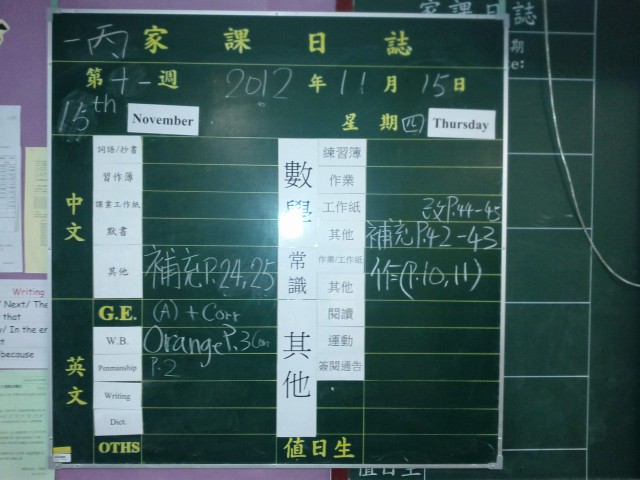 一丙 家課日誌
第十一週 2012年11月15日
15th November 星期四 Thursday
中文
詞語/抄書
習作簿
課業工作紙
默書
其他 補充P.24,25
英文
G.E. (A) + Corr
W.B. Orange P.3 Corr
Penmanship P.2
Writing
Dict.
OTHS
數學
練習簿
作業
工作紙 改P.44-45
其他 補充P.42-43
常識
作業/工作紙 作=(P.10,11)
其他
其他
閱讀
運動
簽閱通告
值日生
家課日誌
期
e:
值日生
Writing
Next/ The
that
/ In the en
because